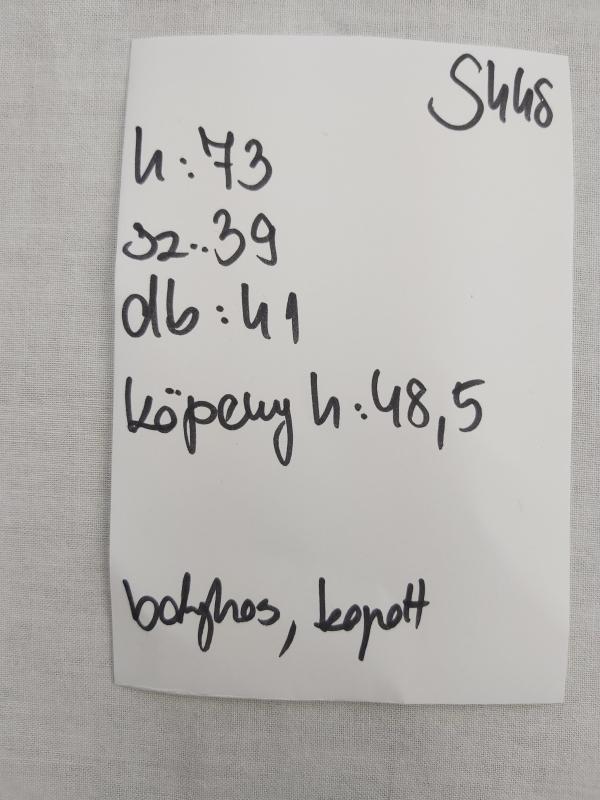 S448
h: 73
sz.: 39
db: 41
köpeny h: 48,5
bolyhos, kopott